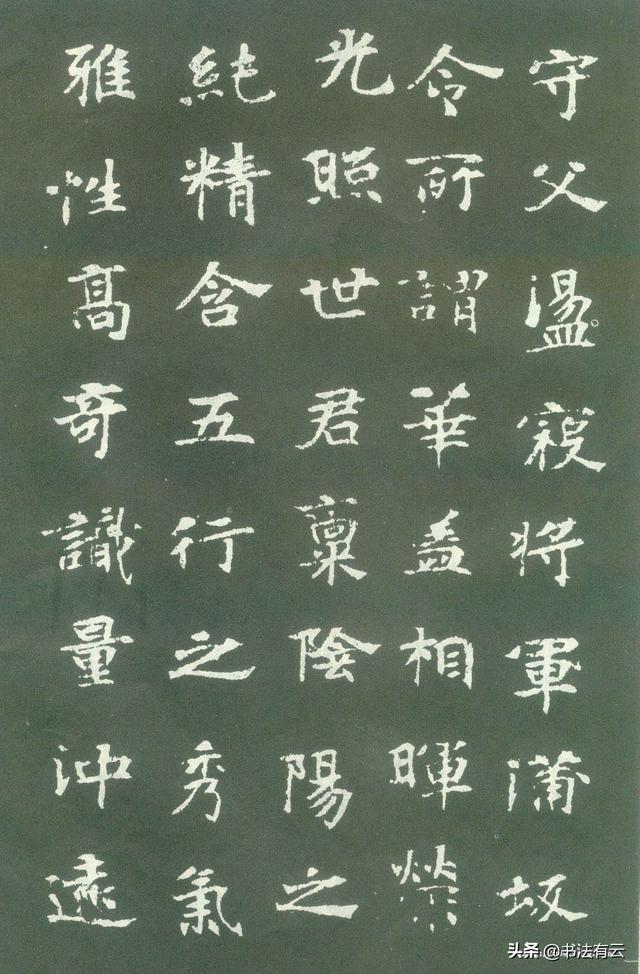 守父溫寇將軍蒲坂
令所謂華盖相暉榮
光照世君稟陰陽之
純精含五行之秀氣
雅性髙奇識量沖遠
头条@书法有云